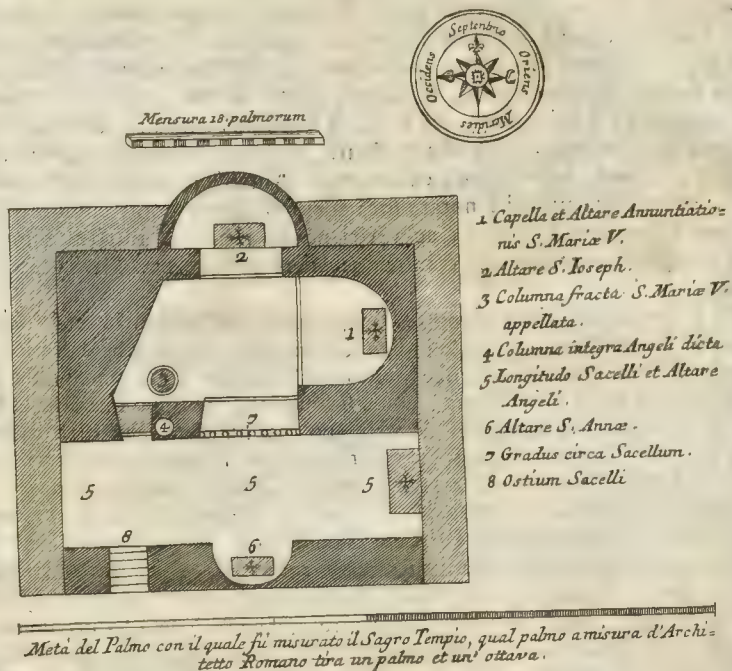 Septentrio
Occidens
Oriens
Meridies
Mensura 18. palmorum
1 Capella et Altare Annuntiatio=
nis S. Mariæ V.
2 Altare S. Ioseph.
3 Columna fracta S. Mariæ V.
appellata.
4 Columna integra Angeli dicta
5 Longitudo Sacelli et Altare
Angeli.
6 Altare S. Annæ.
7 Gradus circa Sacellum.
8 Ostium Sacelli
2
1
3
4
7
5 5 5
8
6
Metà del Palmo con il quale fù misurato il Sagro Tempio, qual palmo a misura d'Archi=
tetto Romano tira un palmo et un' ottava.